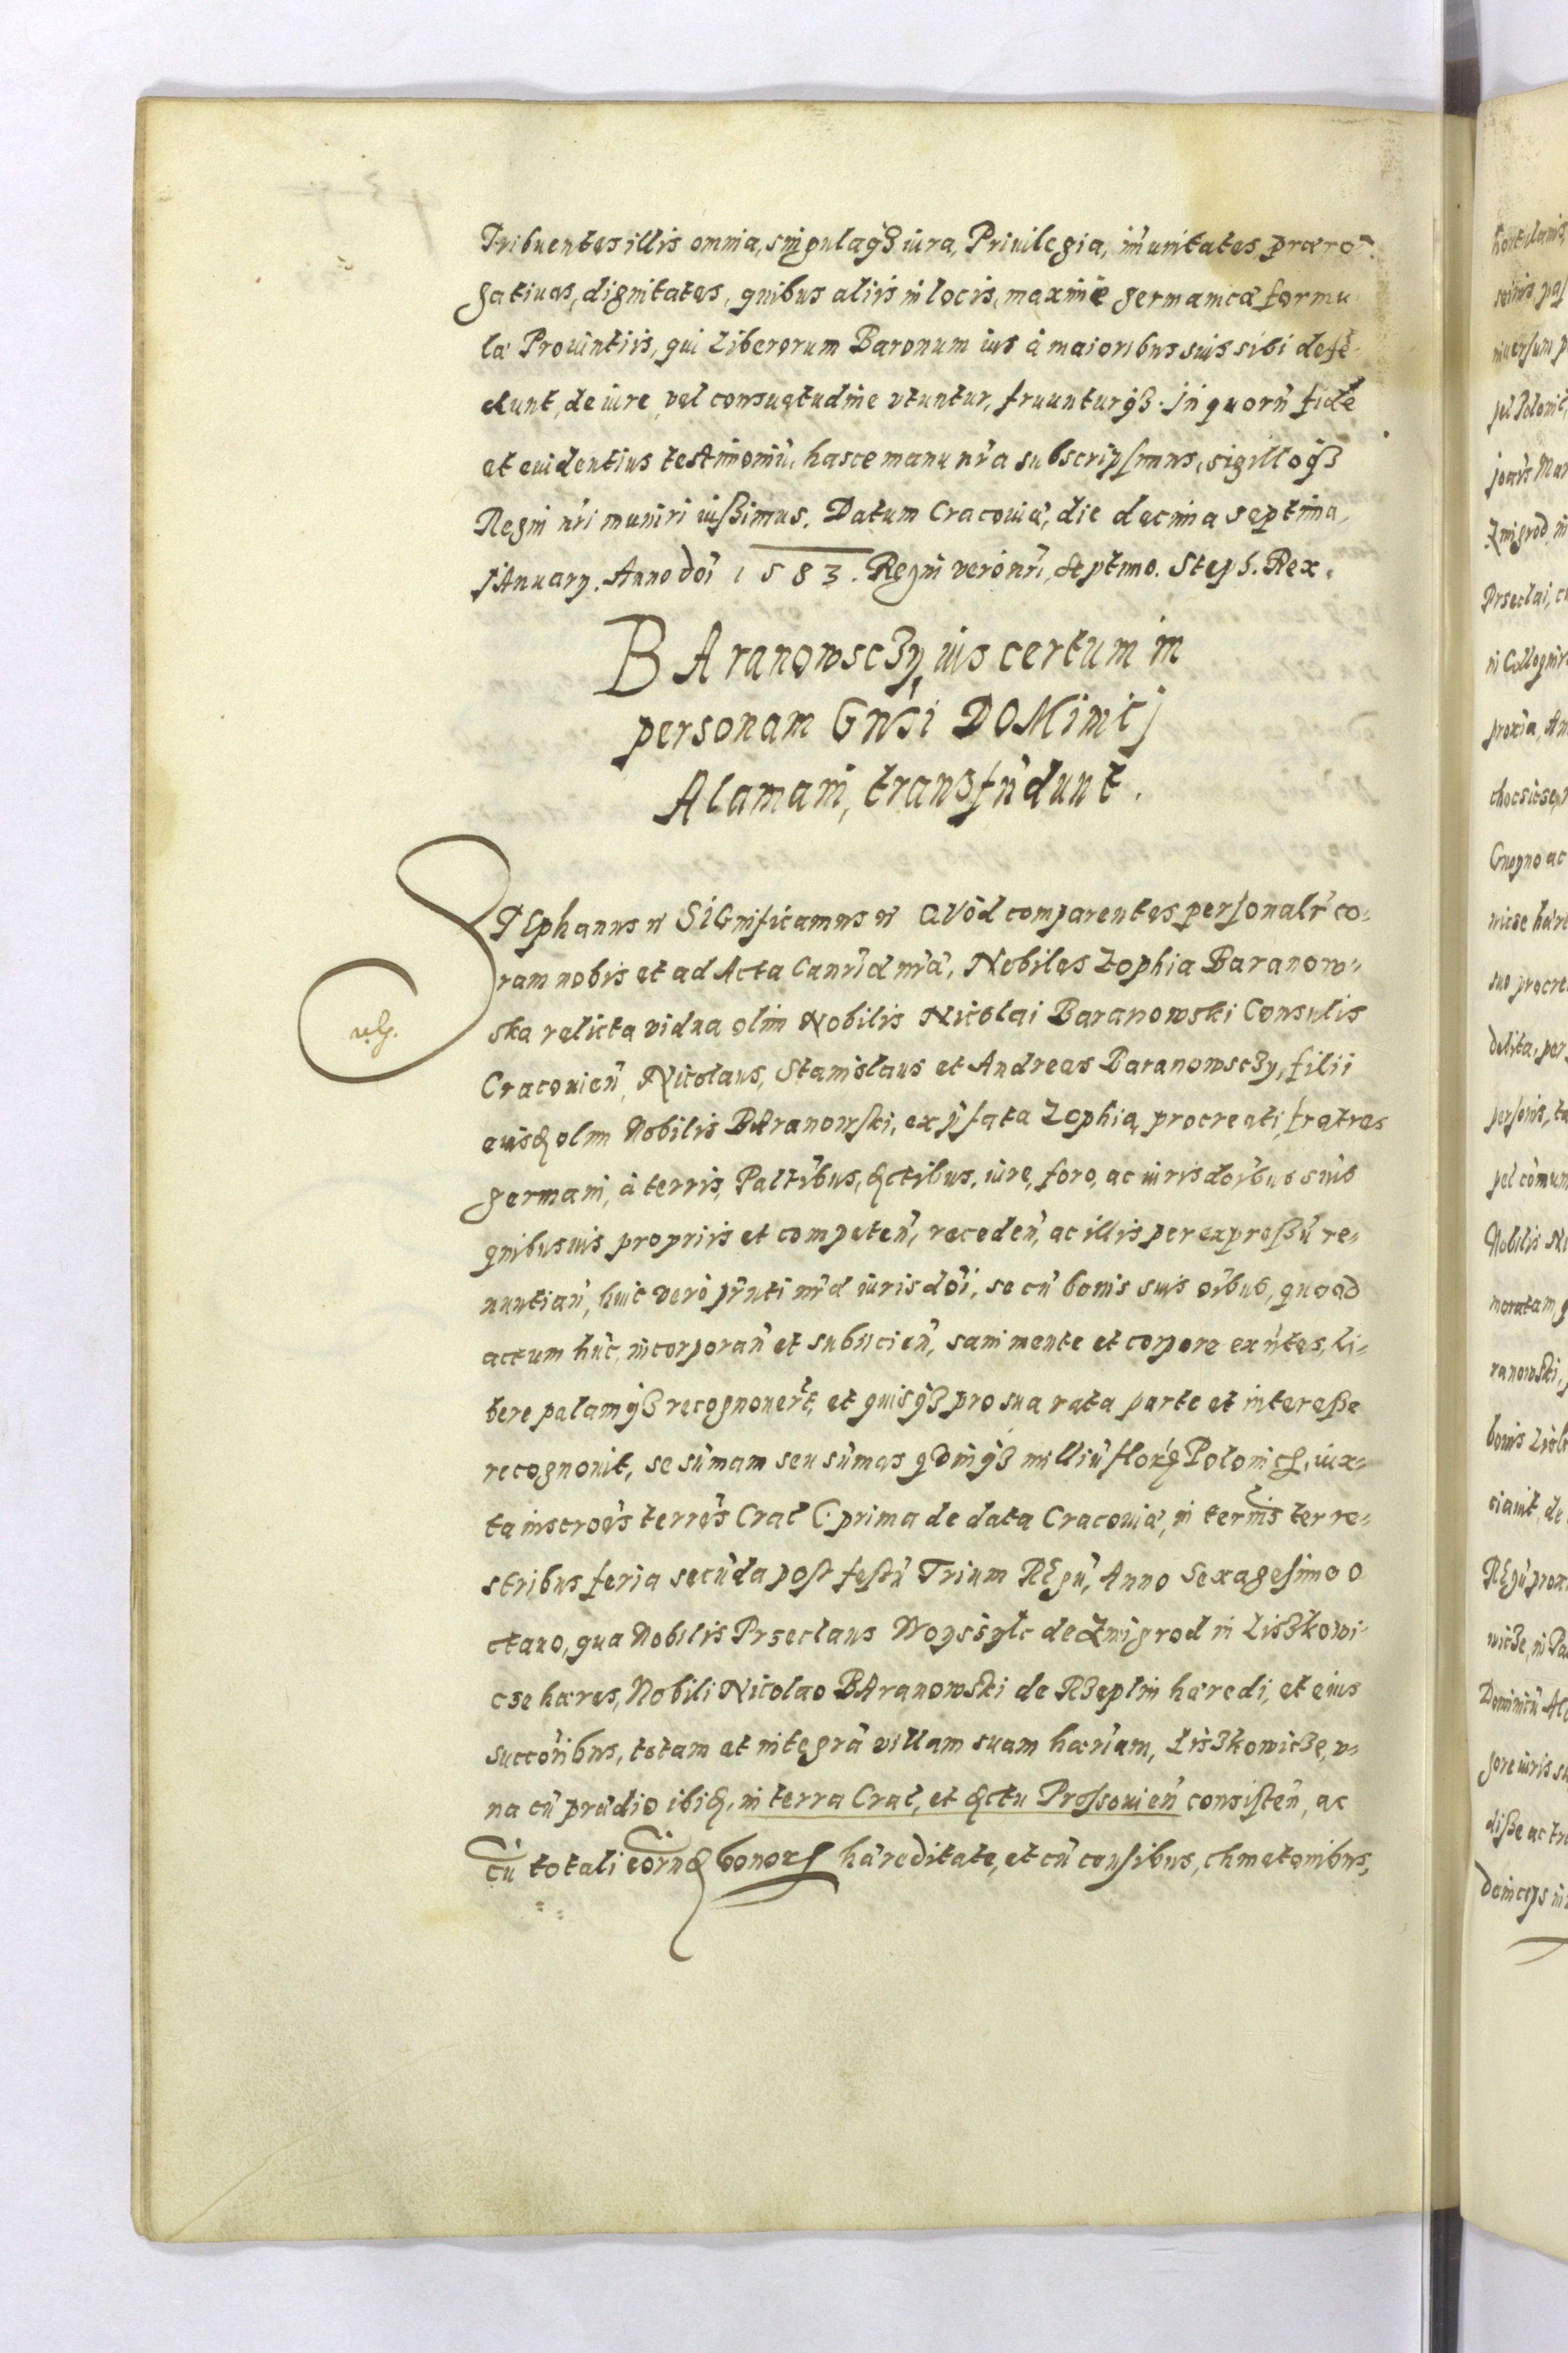 Tribuentes illis omnia, singulaq3 iura, Priuilegia, im̄unitates præro-
gatiuas, dignitates, quibus aliis in locis, maximè germanicæ formu
la Prouintiis, qui Liberorum Baronum ius à maioribus suis sibi defē
dunt, de iure, vel consuetudine vtuntur, fruunturq3. In quorū fidē
et euidentius testimoniū, hasce manu nrā subscripsimus, sigilloq3
Regni nrī muniri iussimus. Datum Cracouiæ, die decima septima,
IAnuary. Anno doī 1583. Regni vero nrī, septimo. Steph. Rex.
BAranowsc3y, ius certum in
personam Gnsī DOMinicj
Alamani, transfūdunt.
STEphanus rc SIGnificamus rc QVōd comparentes personalr̄ co-
ram nobis et ad Acta Canr̄iæ nr̄æ, Nobiles Zophia Baranow-
ska relicta vidua olim Nobilis Nicolai Baranowski Consulis
Cracouieñ, Nicolaus, Stanislaus et Andreas Baranowsc3y, filii
eiusd olim Nobilis BAranowski, ex p̄fata Zophia procreati, fratres
germani, à terris, Paltībus, dctibus, iure, foro, ac iurisdoībus suis
quibusuis propriis et competeñ, recedeñ, ac illis per expressū re-
nuntiañ, huic verò p̄nti nr̄æ iurisdoī, se cū bonis suis oībus, quoad
actum hūc, incorporañ et subiicieñ, sani mente et corpore exn̄tes, li-
bere palamq3 recognouer̄t, et quisq3 pro sua rata parte et interesse
recognouit, se sūmam seu sūmas qdinq3 milliū flor Polonic, iux-
ta inscroēs terrēs Crac C. prima de data Cracouiæ, in termīs terre-
stribus feria secūda post festū Trium REgū, Anno Sexagesimo o
ctauo, qua Nobilis Prseclaus Woyssyk de Zmigrod in Lis3kowi-
cse hæres, Nobili Nicolao BAranowski de R3eplin hæredi, et eius
succorībus, totam et integrā villam suam hærīam, Lis3kowic3e, v-
na cū prædio ibid, in terra Crac, et dctu Prossouieñ consisteñ, ac
cū totali eorūd bonor hæreditate, et cū censibus, chmetonibus,